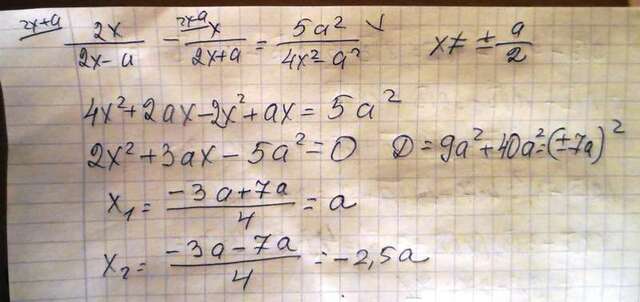 2x+a 2x/(2x-a) - 2x-a x/(2x+a) = 5a²/(4x²-a²) x ≠ ± a/2
4x²+2ax-2x²+ax = 5a²
2x²+3ax-5a²=0 D=9a²+40a²=(±7a)²
x₁ = (-3a+7a)/4 = a
x₂ = (-3a-7a)/4 = -2,5a